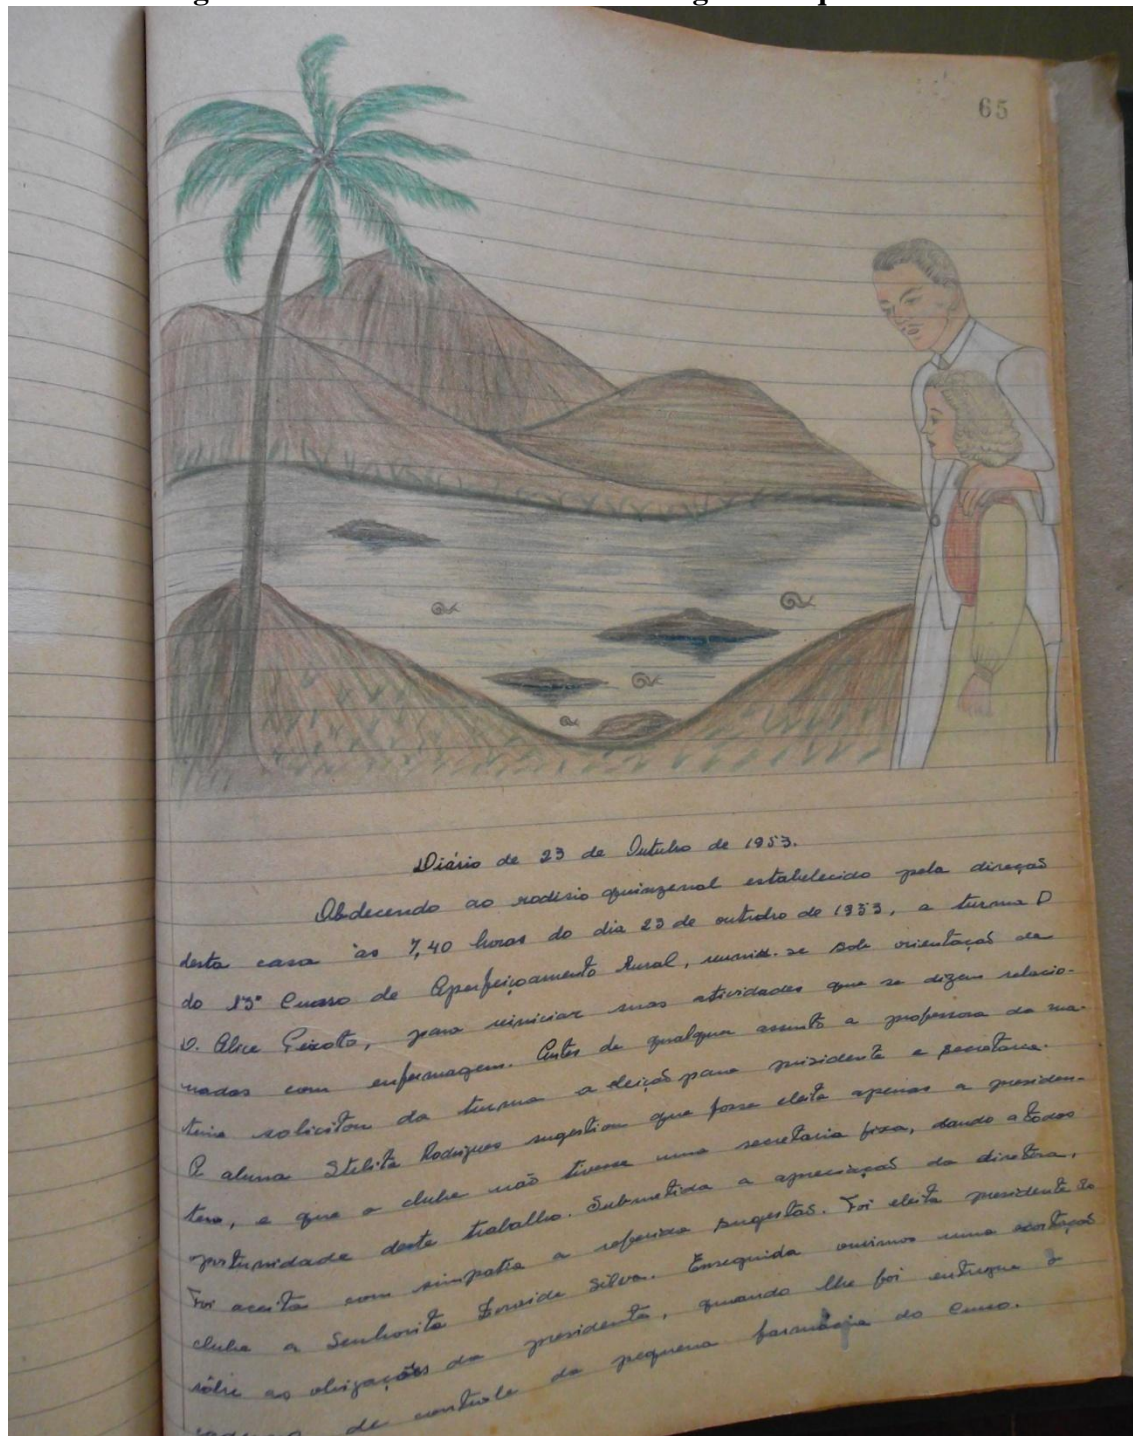 65
Diário de 23 de Outubro de 1953.
Obdecendo ao rodisio quinzenal estabelecido pela direção
desta casa às 7,40 horas do dia 23 de outubro de 1953, a turma D
do 13º Curso de Aperfeiçoamento Rural, reuniu-se sob orientação de
D. Alice Peixoto, para reiniciar suas atividades que se dizem relacio-
nadas com enfermagem. Antes de qualquer assunto a professora da ma-
teria solicitou da turma a eleição para presidente e secretaria.
A aluna Stelita Rodrigues sugestiou que fosse eleita apenas a presiden-
te, e que o clube não tivesse uma secretaria fixa, dando a todos
portunidade deste trabalho. Submetida a apreciação da diretora,
Foi aceita com simpatia a referida sugestão. Foi eleita presidente do
clube a Senhorita Silva. Enseguida ouvimos uma
sôbre as obrigações da presidente, quando lhe foi entregue o
de controle da pequena farmácia do Curso.